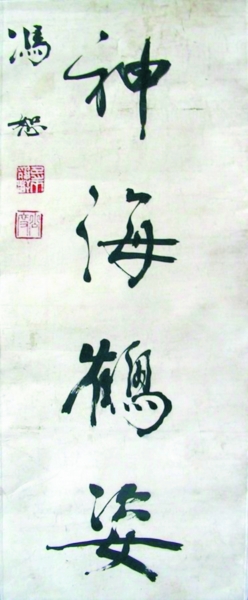 神海鶴姿
馮恕